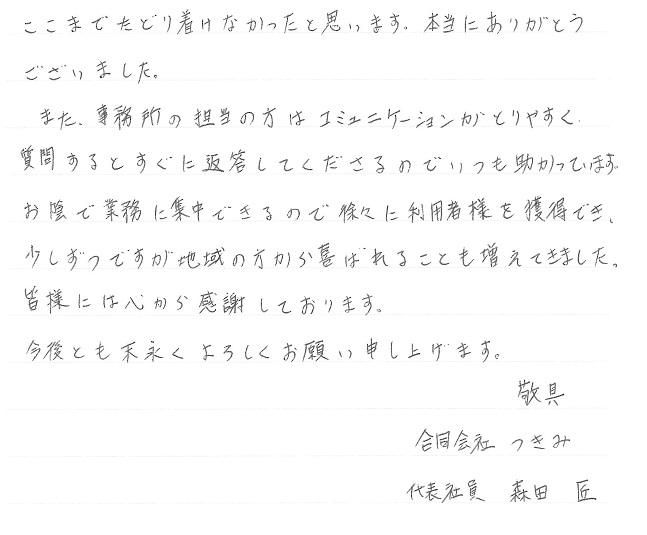 ここまでたどり着けなかったと思います。本当にありがとう
ございました。
また、事務所の担当の方はコミュニケーションがとりやすく、
質問するとすぐに返答してくださるのでいつも助かっています。
お陰で業務に集中できるので徐々に利用者様を獲得でき、
少しずつですが地域の方から喜ばれることも増えてきました。
皆様には心から感謝しております。
今後とも末永くよろしくお願い申し上げます。
敬具
合同会社 つきみ
代表社員 森田 匠